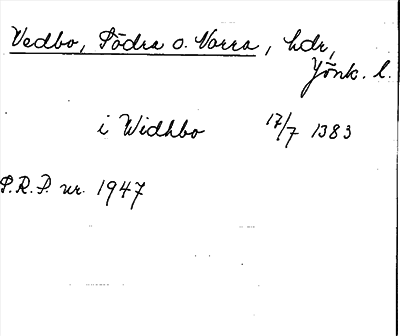 Vedbo, Södra o. Norra, hdr,
Jönk. l.
i Widhbo 17/7 1383
S.R.P. nr. 1947